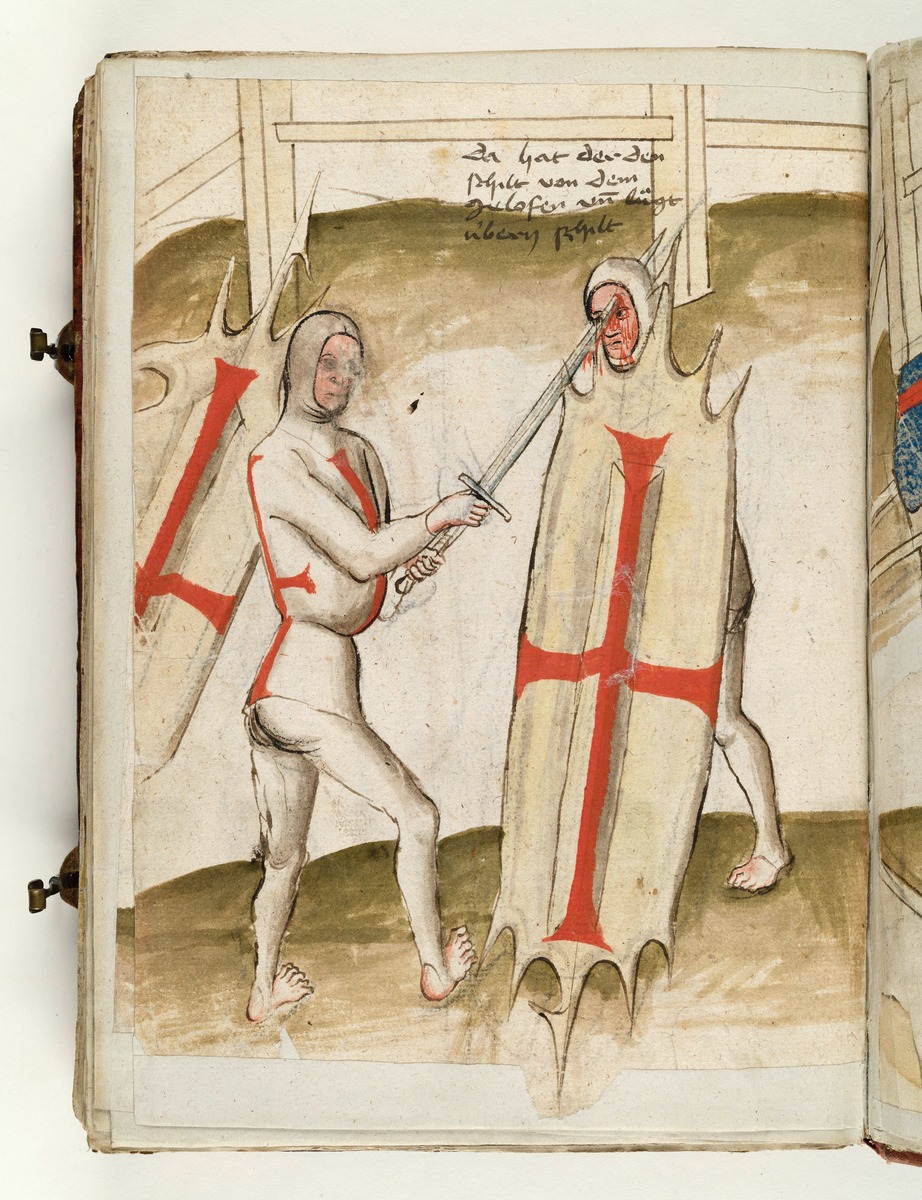 Da hat der den
schilt von dem
gelofen vn̄ lügt
übern schilt